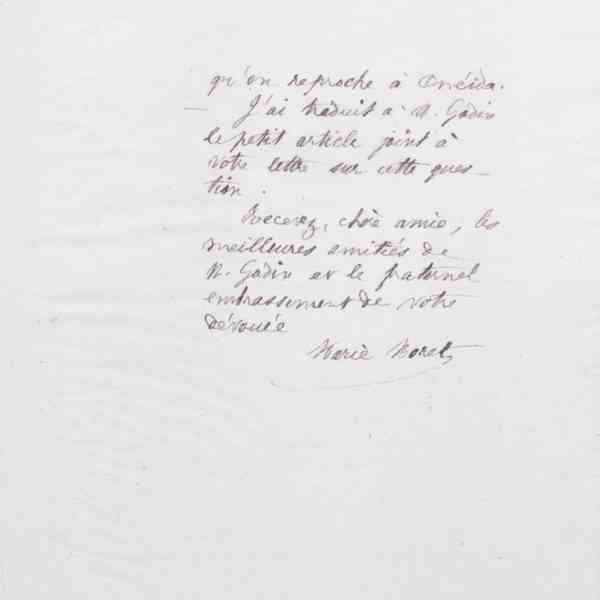 qu'on reproche à Onéida.
— J'ai traduit à M. Godin
le petit article joint à
votre lettre sur cette ques-
tion.
Recevez, chère amie, les
meilleures amitiés de
M. Godin et le fraternel
embrassement de votre
dévouée
Marie Moret